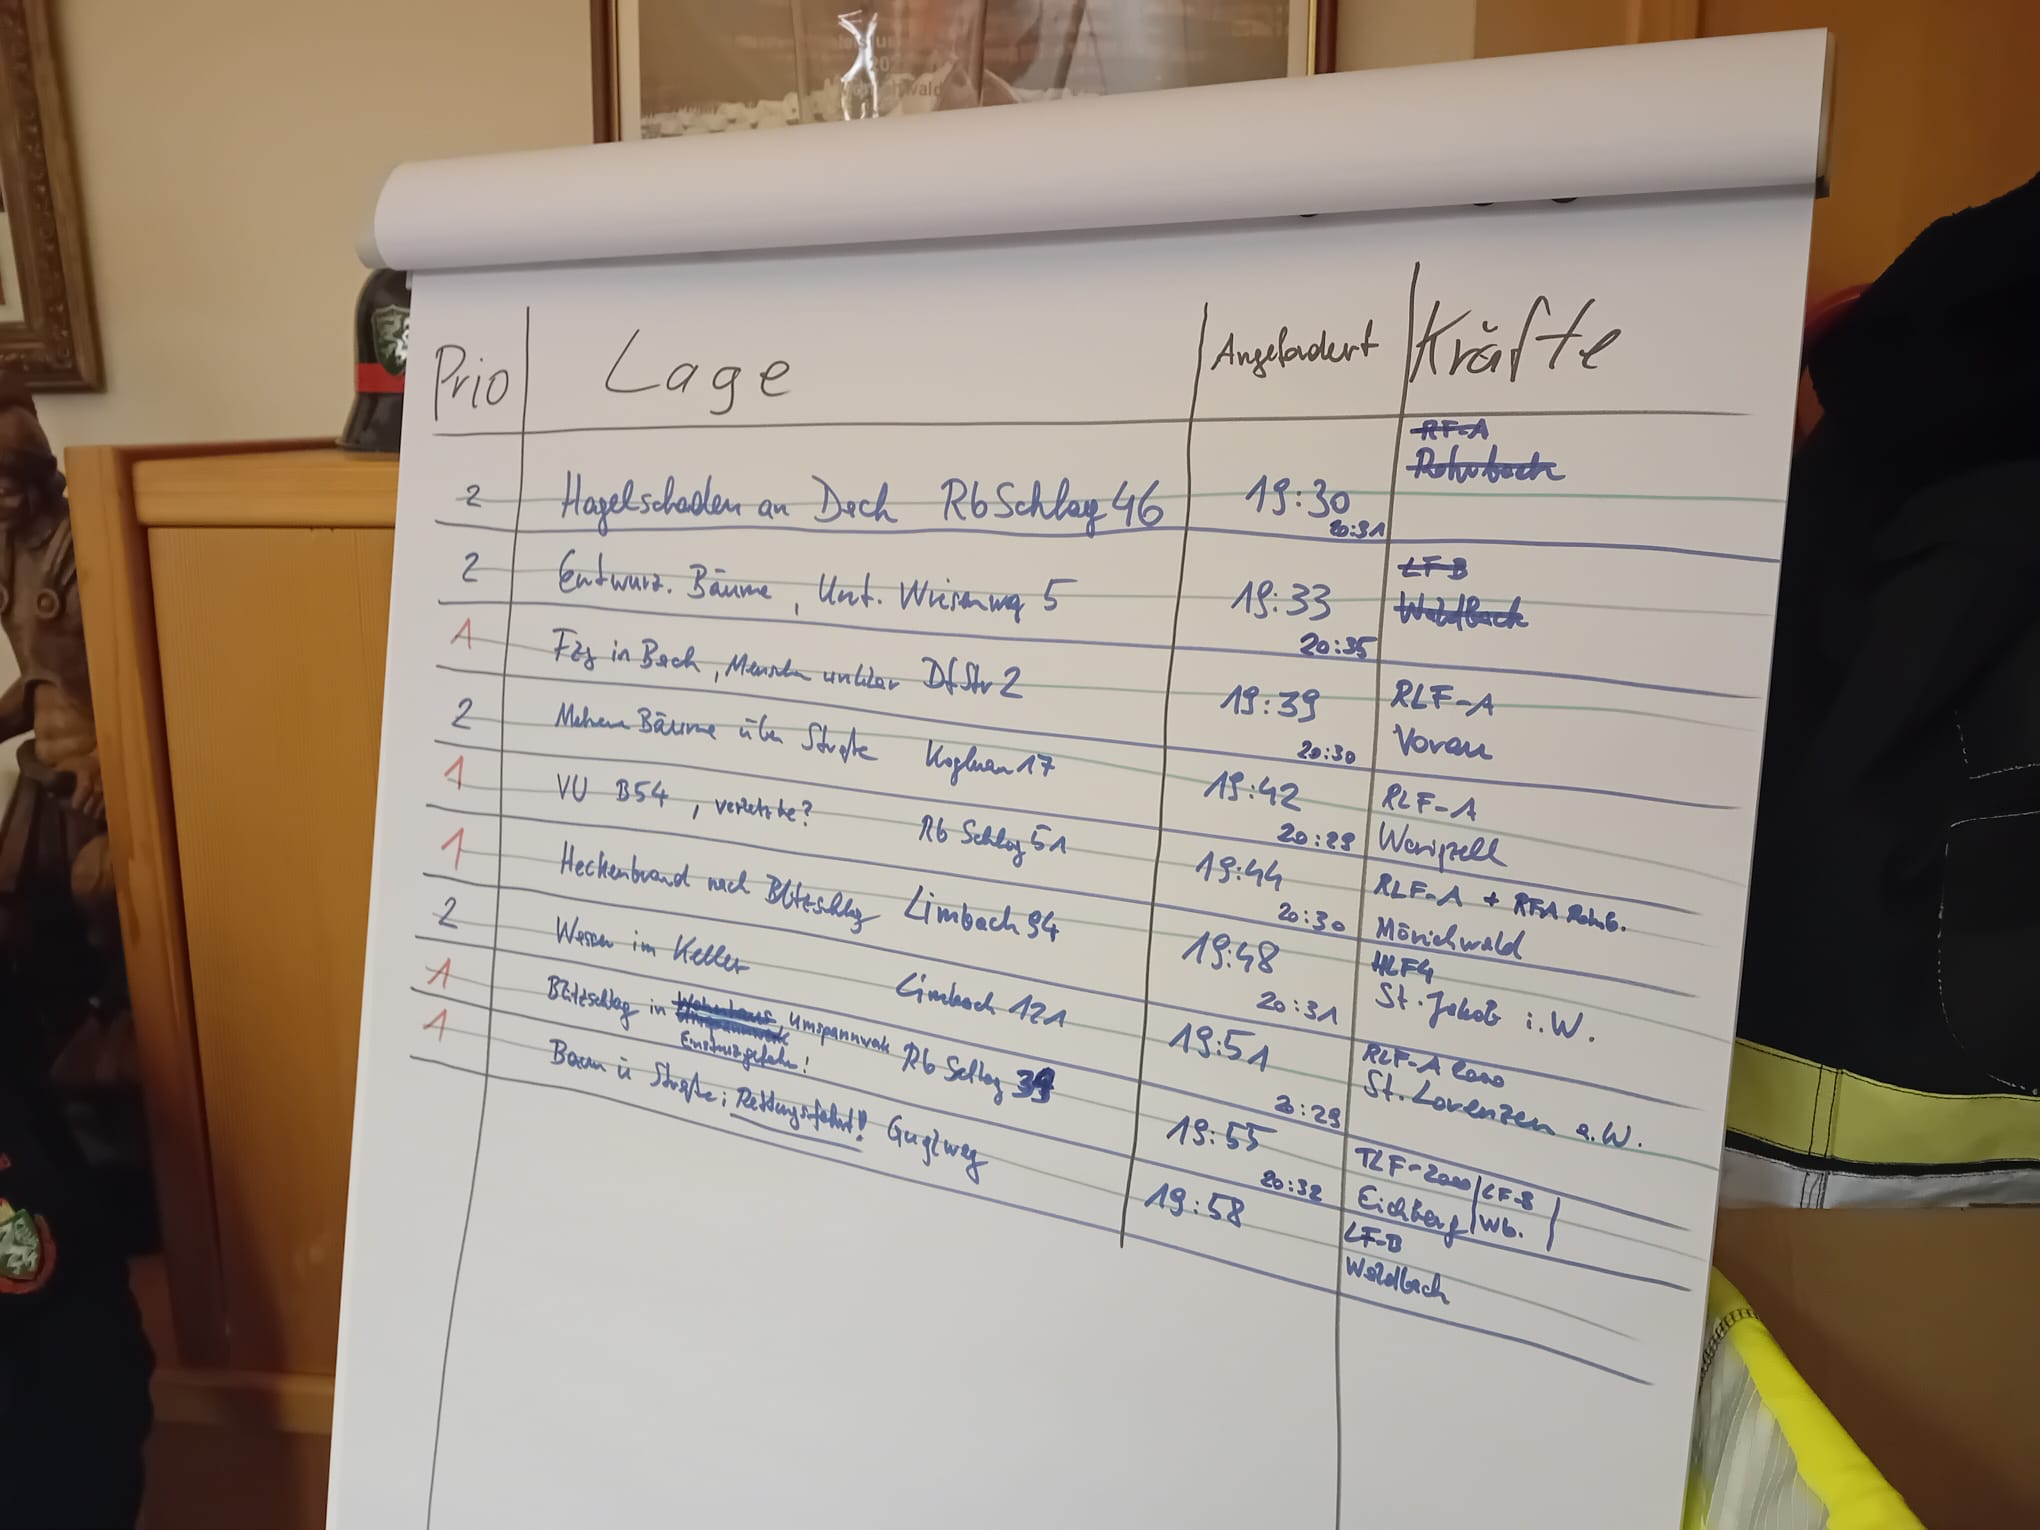 Prio Lage Angefordert Kräfte
RF-A
Rohrbach
2 Hagelschaden an Dach Rb Schlag 46 19:30
20:31
LF-B
2 Entwurz. Bäume, Unt. Wiesenweg 5 19:33 Waldbach
20:35
1 Fzg in Bach, Menschen unklar DfStr 2 19:39 RLF-A
20:30 Vorau
2 Mehere Bäume über Straße 17 19:42 RLF-A
20:29 Wenigzell
1 VU B54, verletzte? Rb Schlag 51 19:44 RLF-A + RFA Rohrb.
20:30 Mönichwald
1 Heckenbrand nach Blitzschlag Limbach 94 19:48 HLF4
20:31 St. Jakob i. W.
2 Wasser im Keller Limbach 121 19:51 RLF-A 2000
20:29 St. Lorenzen a. W.
1 Blitzschlag in Wohnhaus, Umspannwerk Rb Schlag 39 19:55 TLF-2000 LF-B
Einsturzgefahr! 20:32 Eichberg Wb.
1 Baum ü Straße; Rettungsfahrt! Guglweg 19:58 LF-B
Waldbach